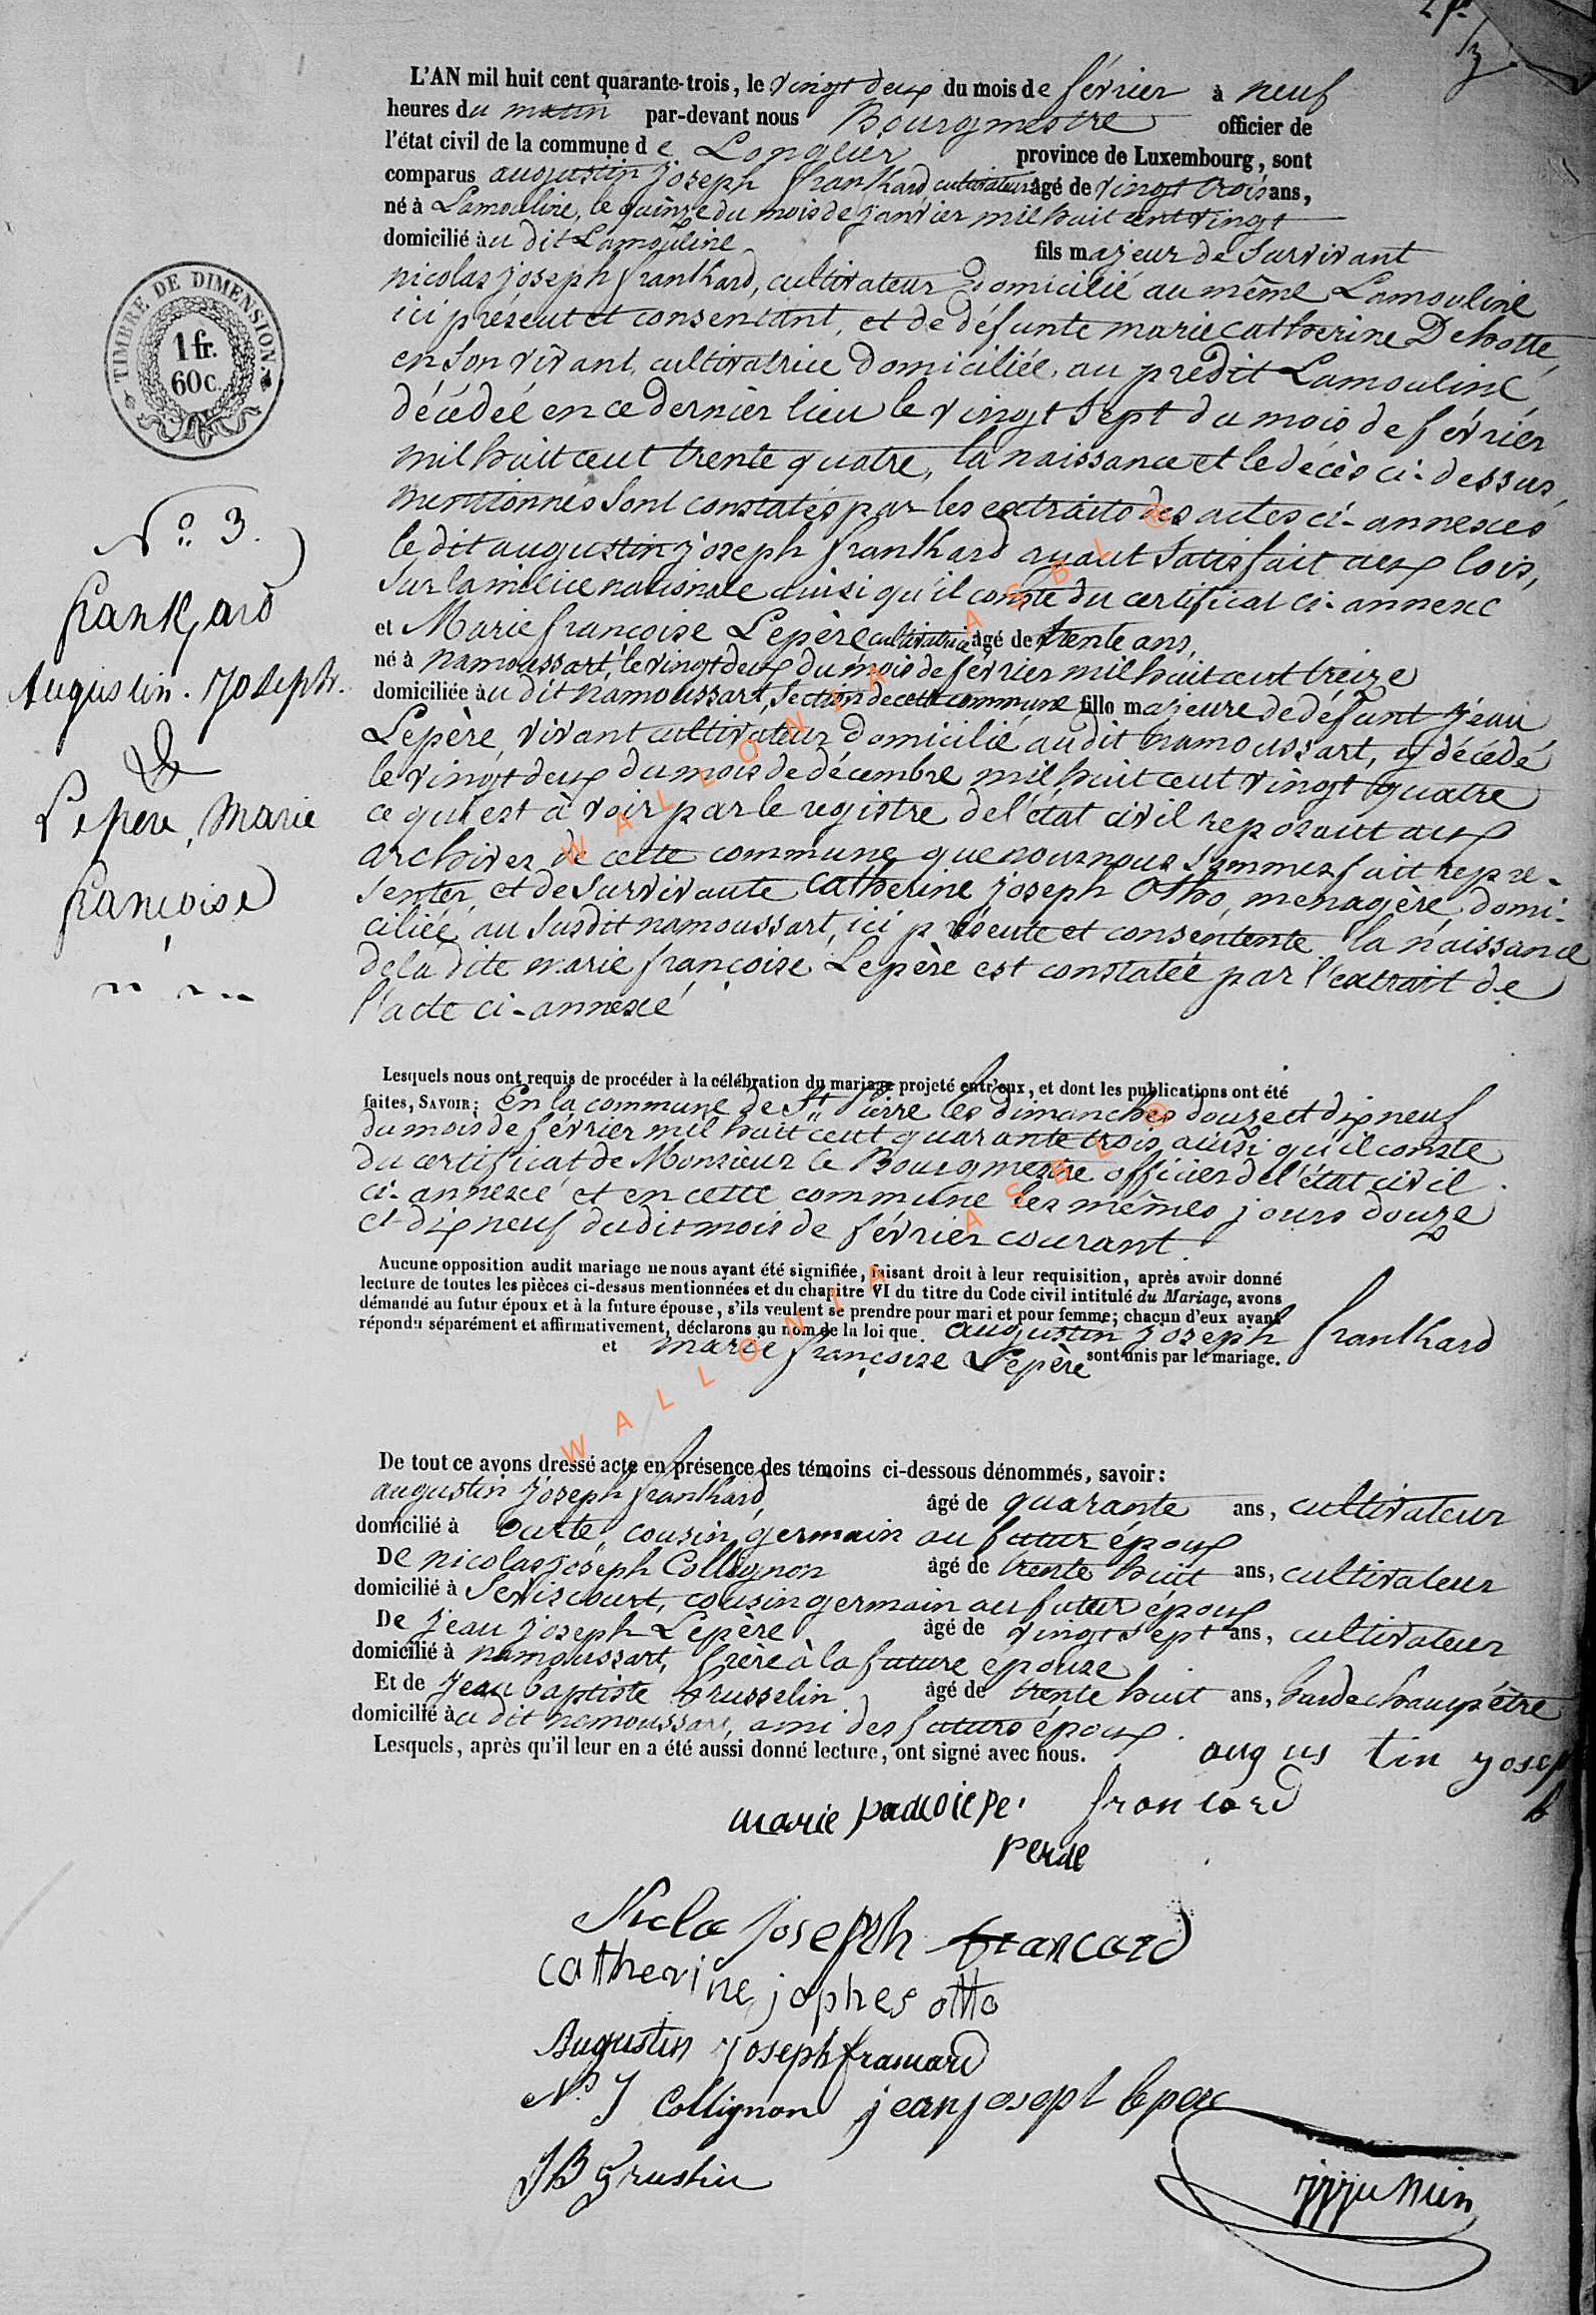 L'AN mil huit cent quarante-trois, le vingt deux du mois de février à neuf
heures du matin par-devant nous Bourgmestre officier de
l'état civil de la commune de Longlier province de Luxembourg, sont
comparus augustin joseph frankard, cultivateur âgé de vingt trois ans,
né à Lamouline, le quinze du mois de janvier mil huit cent vingt
domicilié au dit Lamouline fils majeur de survivant
nicolas joseph frankard, cultivateur domicilié au même Lamouline
ici présent et consentant, et de défunte marie catherine Dehotte,
en son vivant, cultivatrice domiciliée, au prédit Lamouline,
décédée en ce dernier lieu le vingt sept du mois de février
mil huit cent trente quatre, la naissance et le décès ci-dessus,
mentionnés sont constatés par les extraits des actes ci-annexés
le dit augustin joseph frankard ayant satisfait aux lois,
sur la milice nationale ainsi qu'il conste du certificat ci-annexé
et Marie françoise Lepère cultivatrice âgé de trente ans,
né à namoussart, le vingt deux du mois de février mil huit cent treize
domiciliée au dit namoussart, section de cette commune fille majeure de défunt jean
Lepère, vivant cultivateur domicilié audit namoussart, y décédé
le vingt deux du mois de décembre mil huit cent vingt quatre
ce qui est à voir par le registre de l'état civil reposant aux
archives de cette commune que nous nous sommes fait repré-
senter, et de survivante catherine joseph Otho, menagère, domi-
ciliée, au susdit namoussart, ici présente et consentente la naissance
de la dite marie françoise Lepère est constatée par l'extrait de
l'acte ci-annexé
TIMBRE DE DIMENSION.
1 fr.
60 c.
N° 3.
frankard
Augustin. Joseph.
&
Lepere, Marie
françoise
Lesquels nous ont requis de procéder à la célébration du mariage projeté entr'eux, et dont les publications ont été
faites, SAVOIR: En la commune de St Pierre les dimanches douze et dix neuf
du mois de février mil huit cent quarante trois, ainsi qu'il conste
du certificat de Monsieur le Bourgmestre officier de l'état civil
ci-annexé et en cette commune les mêmes jours douze
et dix neuf dudit mois de février courant.
Aucune opposition audit mariage ne nous ayant été signifiée, faisant droit à leur requisition, après avoir donné
lecture de toutes les pièces ci-dessus mentionnées et du chapitre VI du titre du Code civil intitulé du Mariage, avons
démandé au futur époux et à la future épouse, s'ils veulent se prendre pour mari et pour femme; chacun d'eux ayant
répondu séparément et affirmativement, déclarons au nom de la loi que augustin joseph frankard
et marie françoise Lepère sont unis par le mariage.
De tout ce avons dressé acte en présence des témoins ci-dessous dénommés, savoir:
augustin joseph frankard, âgé de quarante ans, cultivateur
domicilié à ourte, cousin germain au futur époux
De nicolas joseph Collignon âgé de trente huit ans, cultivateur
domicilié à Seviscourt, cousin germain au futur époux
De jean joseph Lepère âgé de vingt sept ans, cultivateur
domicilié à namoussart, frère à la future épouse
Et de Jean baptiste Grusselin âgé de trente huit ans, garde champêtre
domicilié au dit namoussart, ami des futurs époux.
Lesquels, après qu'il leur en a été aussi donné lecture, ont signé avec nous.
augus tin yosep
h
francard
marie
perde
Nicla joseph francard
catherine jophes otto
Augustin joseph francard
N. J Collignon jean joseph lepere
JB Gruslin
WALLONIA ASBL ©
WALLONIA ASBL ©